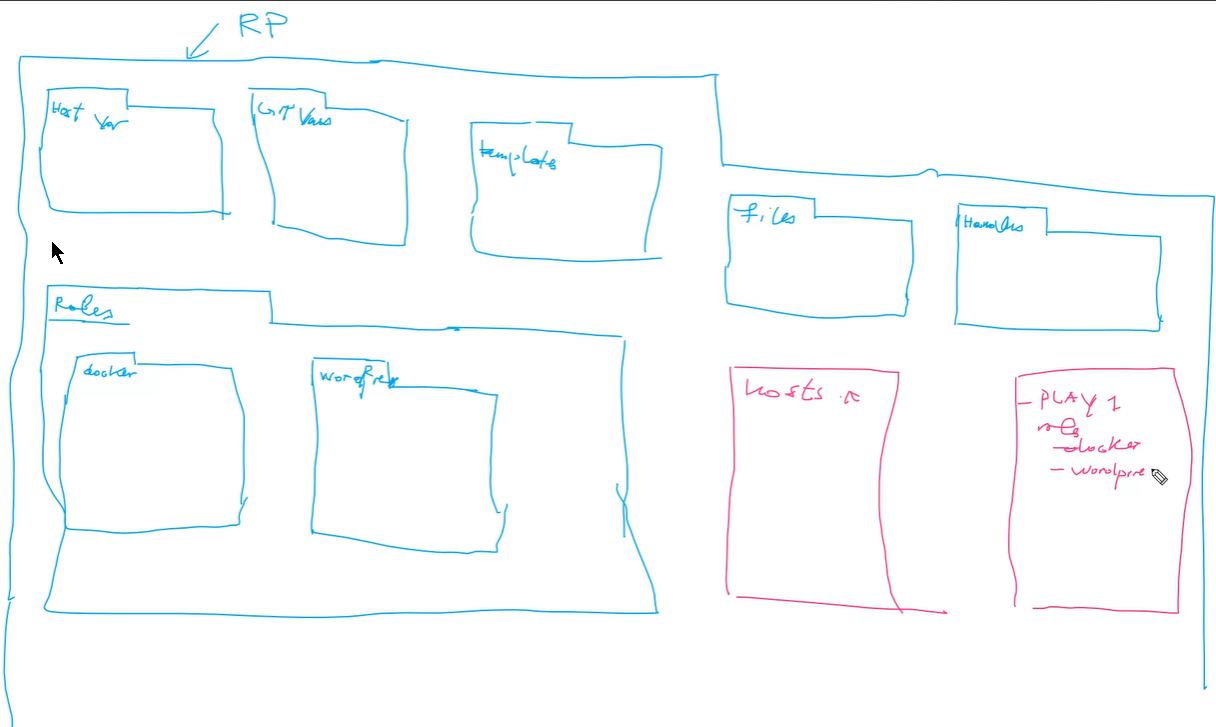 RP
Host Var
Grp Vars
templates
files
Handlers
Roles
docker
wordpress
hosts
- PLAY 1
roles
- docker
- wordpre